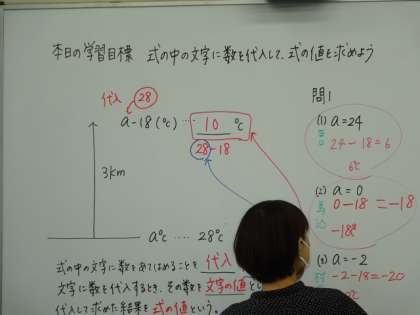 本日の学習目標 式の中の文字に数を代入して、式の値を求めよう
代入 28
a-18(℃) … 10 ℃
28-18
3km
a℃ …… 28℃
式の中の文字に数をあてはめることを 代入
文字に数を代入するとき、その数を 文字の値 と
代入して求めた結果を 式の値 という。
問1
(1) a=24
24-18=6
6℃
(2) a=0
0-18=-18
-18℃
(3) a=-2
-2-18=-20
℃